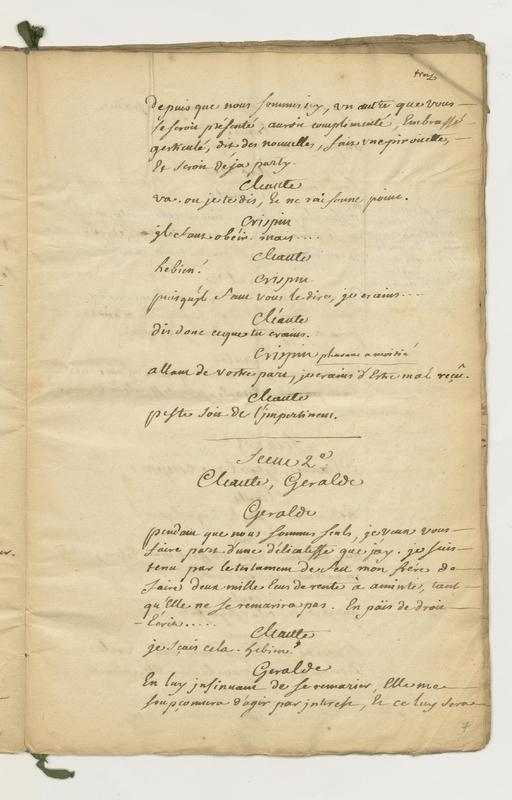 trois
Depuis que nous sommes icy, un autre que vous
se seroit présenté, auroit complimenté, Embrassé
gesticulé, dit des nouvelles, fait une piroüette,
Et seroit deja party.
Cléante
va. ou je te dis, Et ne raisonne point.
Crispin
il faut obéir. mais ....
Cléante
hebien!
Crispin
puisqu'il faut vous le dire, je crains ....
Cléante
dis donc ceque tu crains.
Crispin
allant de vostre part, je crains d'Estre mal reçû.
Cléante
peste soit de l'impertinent.
Scene 2e
Cléante, Geralde
Geralde
pendant que nous sommes seuls, je veux vous
faire part d'une délicatesse que j'ay. je suis
tenu par le testament de feu mon frére de
faire deux mille Ecus de rente à aminte, tant
qu'Elle ne se remarira pas. En païs de droit
Ecrit .....
Cléante
je sçais cela. hebien?
Geralde
En luy insinuant de se remarier, Elle me
soupçonnera d'agir par interest, Et ce luy sera
7